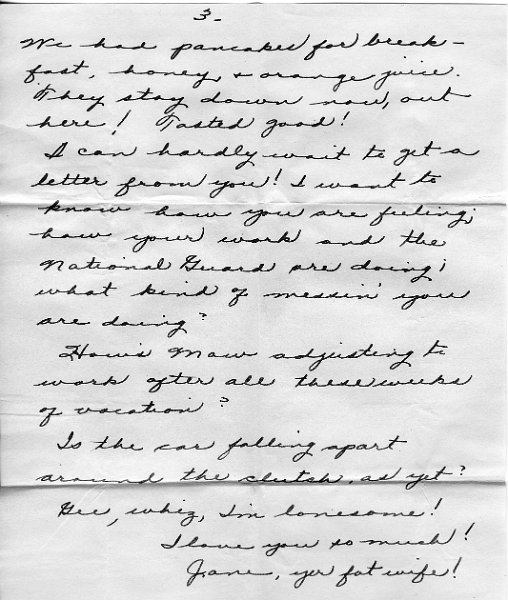 3-
We had pancakes for break-
fast, honey, & orange juice.
They stay down now, out
here! Tasted good!
I can hardly wait to get a
letter from you! I want to
know how you are feeling;
how your work and the
National Guard are doing;
what kind of messin' you
are doing?
How's Maw adjusting to
work after all these weeks
of vacation?
Is the car falling apart
around the clutch, as yet?
Gee, whiz, I'm lonesome!
I love you so much!
Jane, yer fat wife!